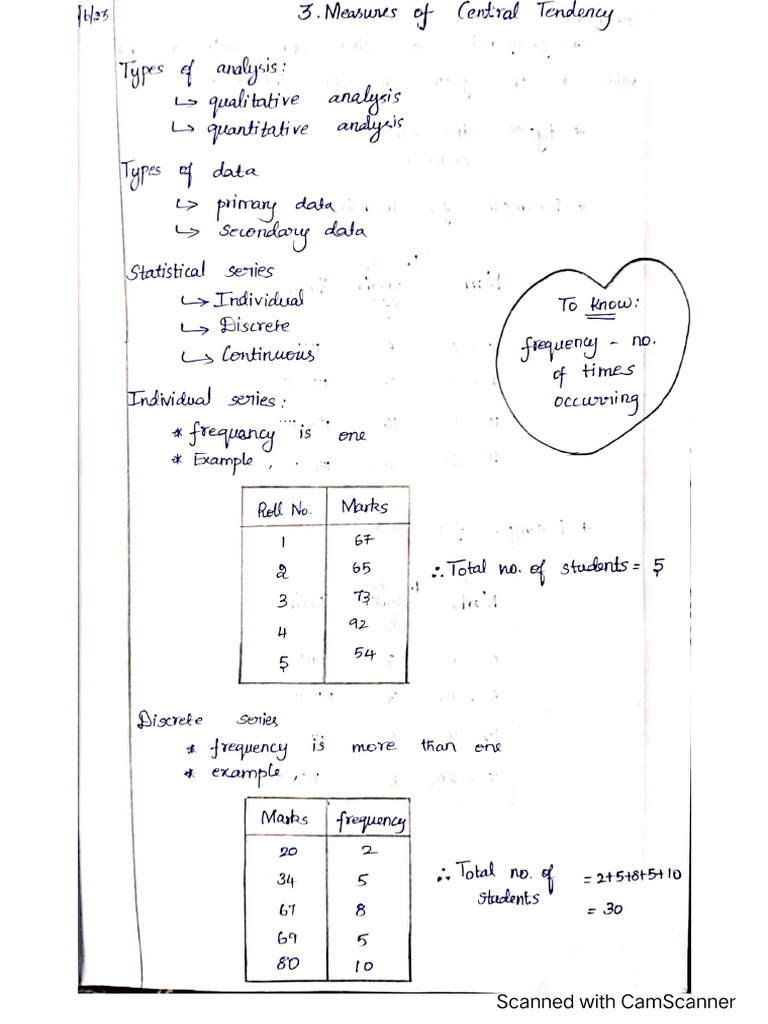 16/23
3. Measures of Central Tendency
Types of analysis:
↳ qualitative analysis
↳ quantitative analysis
Types of data
↳ primary data
↳ secondary data
Statistical series
↳ Individual
↳ Discrete
↳ Continuous
To Know:
frequency - no.
of times
occurring
Individual series:
* frequency is one
* Example,
Roll No. Marks
1 67
2 65
3 73
4 92
5 54
∴ Total no. of students = 5
Discrete series
* frequency is more than one
* example,
Marks frequency
20 2
34 5
67 8
69 5
80 10
∴ Total no. of students = 2+5+8+5+10
= 30
Scanned with CamScanner